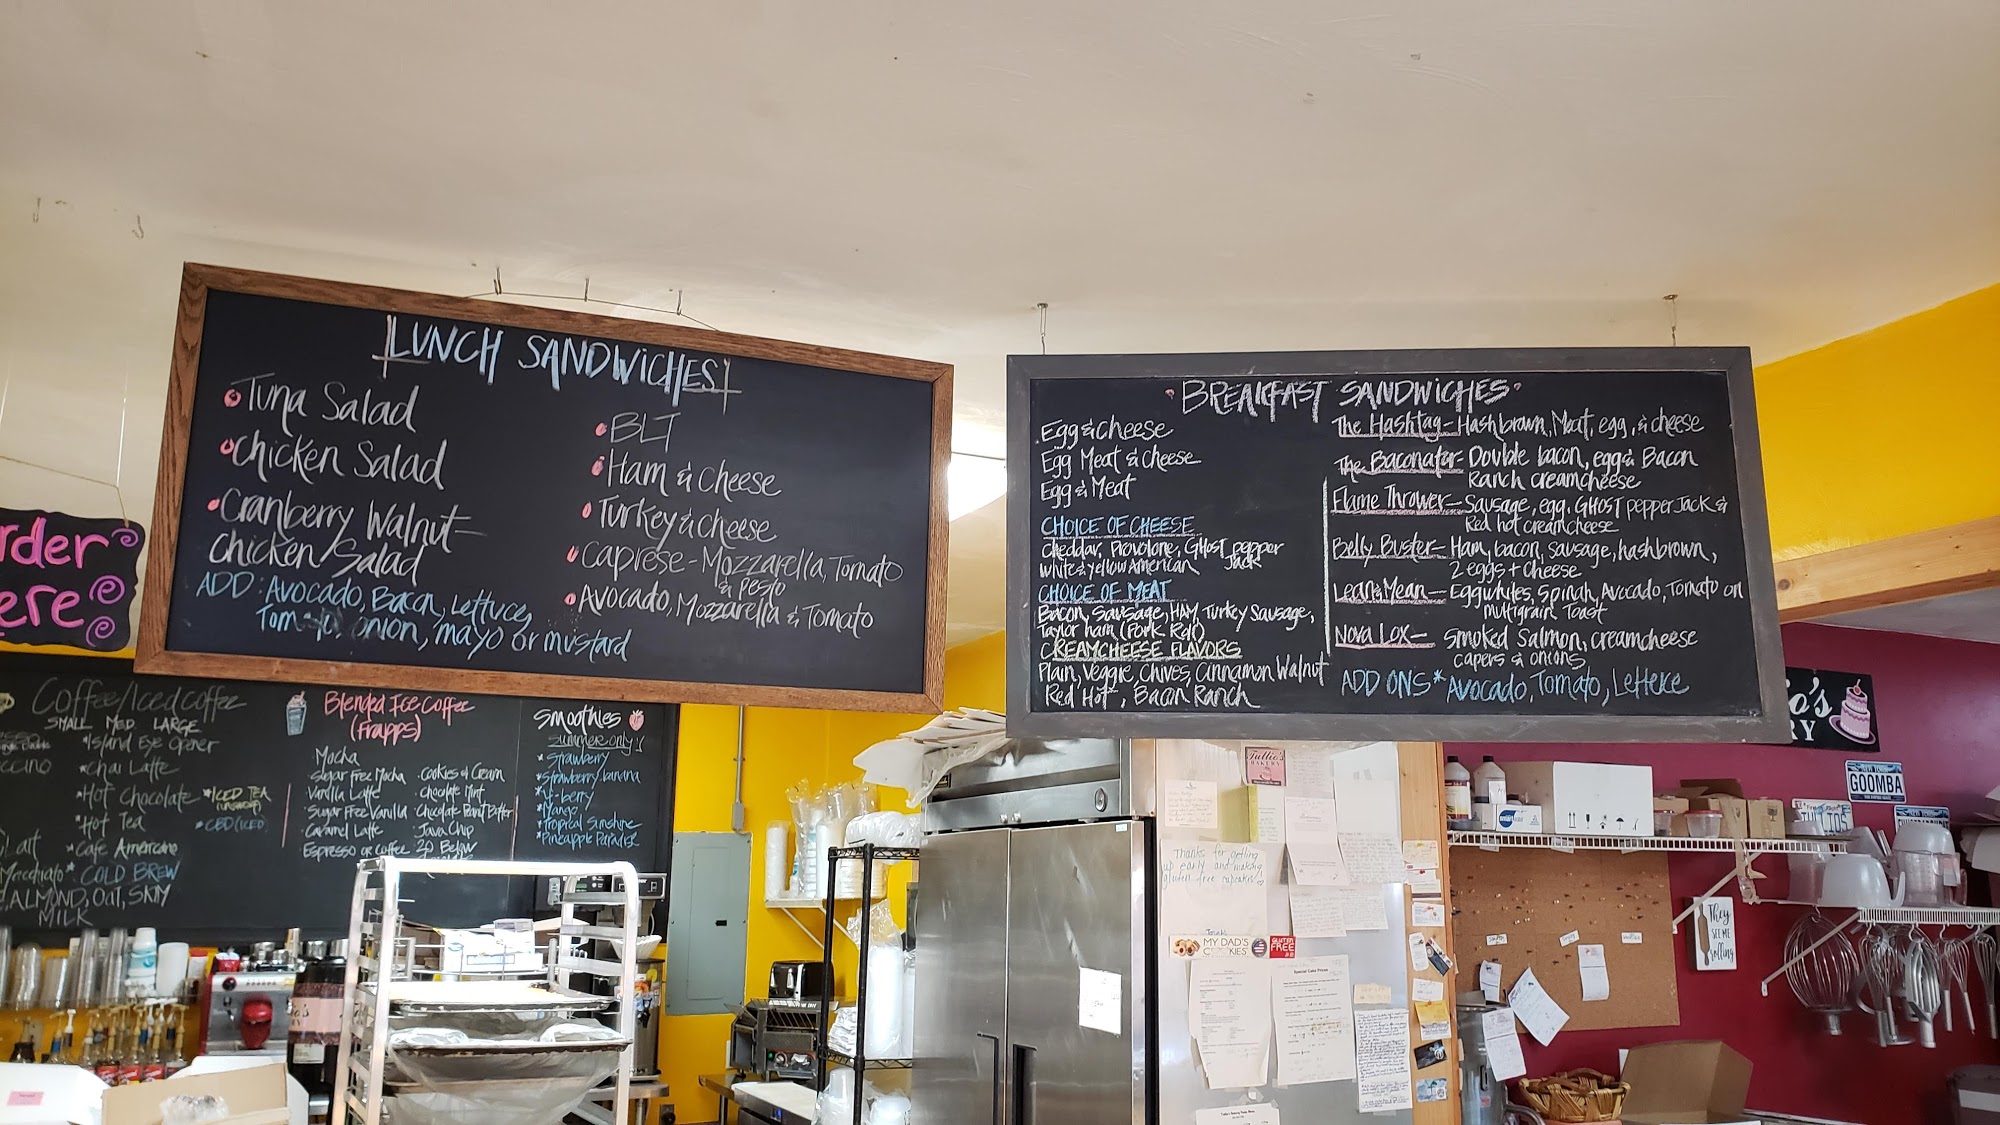 LUNCH SANDWICHES
Tuna Salad
Chicken Salad
Cranberry Walnut
Chicken Salad
BLT
Ham & Cheese
Turkey & cheese
Caprese - Mozzarella, Tomato
& Pesto
Avocado, Mozzarella & Tomato
ADD: Avocado, Bacon, Lettuce,
Tomato, onion, mayo or mustard
BREAKFAST SANDWICHES
Egg & Cheese
Egg Meat & Cheese
Egg & Meat
CHOICE OF CHEESE
Cheddar, Provolone, GHost pepper
Jack
White & yellow American
CHOICE OF MEAT
Bacon, Sausage, HAM, Turkey Sausage,
Taylor ham (Pork Roll)
CREAMCHEESE FLAVORS
Plain, Veggie, Chives, Cinnamon Walnut
Red Hot, Bacon Ranch
The Hashtag - Hashbrown, Meat, egg, & cheese
The Baconator - Double bacon, egg & Bacon
Ranch creamcheese
Flame Thrower - Sausage, egg, GHOST pepper Jack &
Red hot creamcheese
Belly Buster - Ham, bacon, sausage, hashbrown,
2 eggs + cheese
Lean & Mean - Eggwhites, Spinah, Avocado, Tomato on
multigrain Toast
Nova Lox - Smoked Salmon, creamcheese
capers & onions
ADD ONS* Avocado, Tomato, Lettuce
rder
ere
Coffee/Iced coffee
SMALL MED LARGE
*Island Eye Opener
*Chai Latte
*Hot Chocolate
*Hot Tea
*Cafe Americano
*COLD BREW
*ICED TEA
*CBD (ICED
ALMOND, Oat, SKIM
MILK
Blended Ice Coffee
(Frapps)
Mocha
Sugar Free Mocha
Vanilla Latte
Sugar Free Vanilla
Caramel Latte
Espresso or Coffee
Cookies & Cream
Chocolate Mint
Chocolate Peanut Butter
Java Chip
20 Below
Smoothies
Summer only!
*Strawberry
*Strawberry banana
*Mango
*Tropical Sunshine
*Pineapple Paradise
Tullio's
BAKERY
Thanks for getting
up early and making
gluten free cupcakes!
MY DAD'S
COOKIES
GLUTEN
FREE
Special Cake Prices
They
SEE ME
rolling
io's
RY
NEW YORK
GOOMBA
TULLIOS